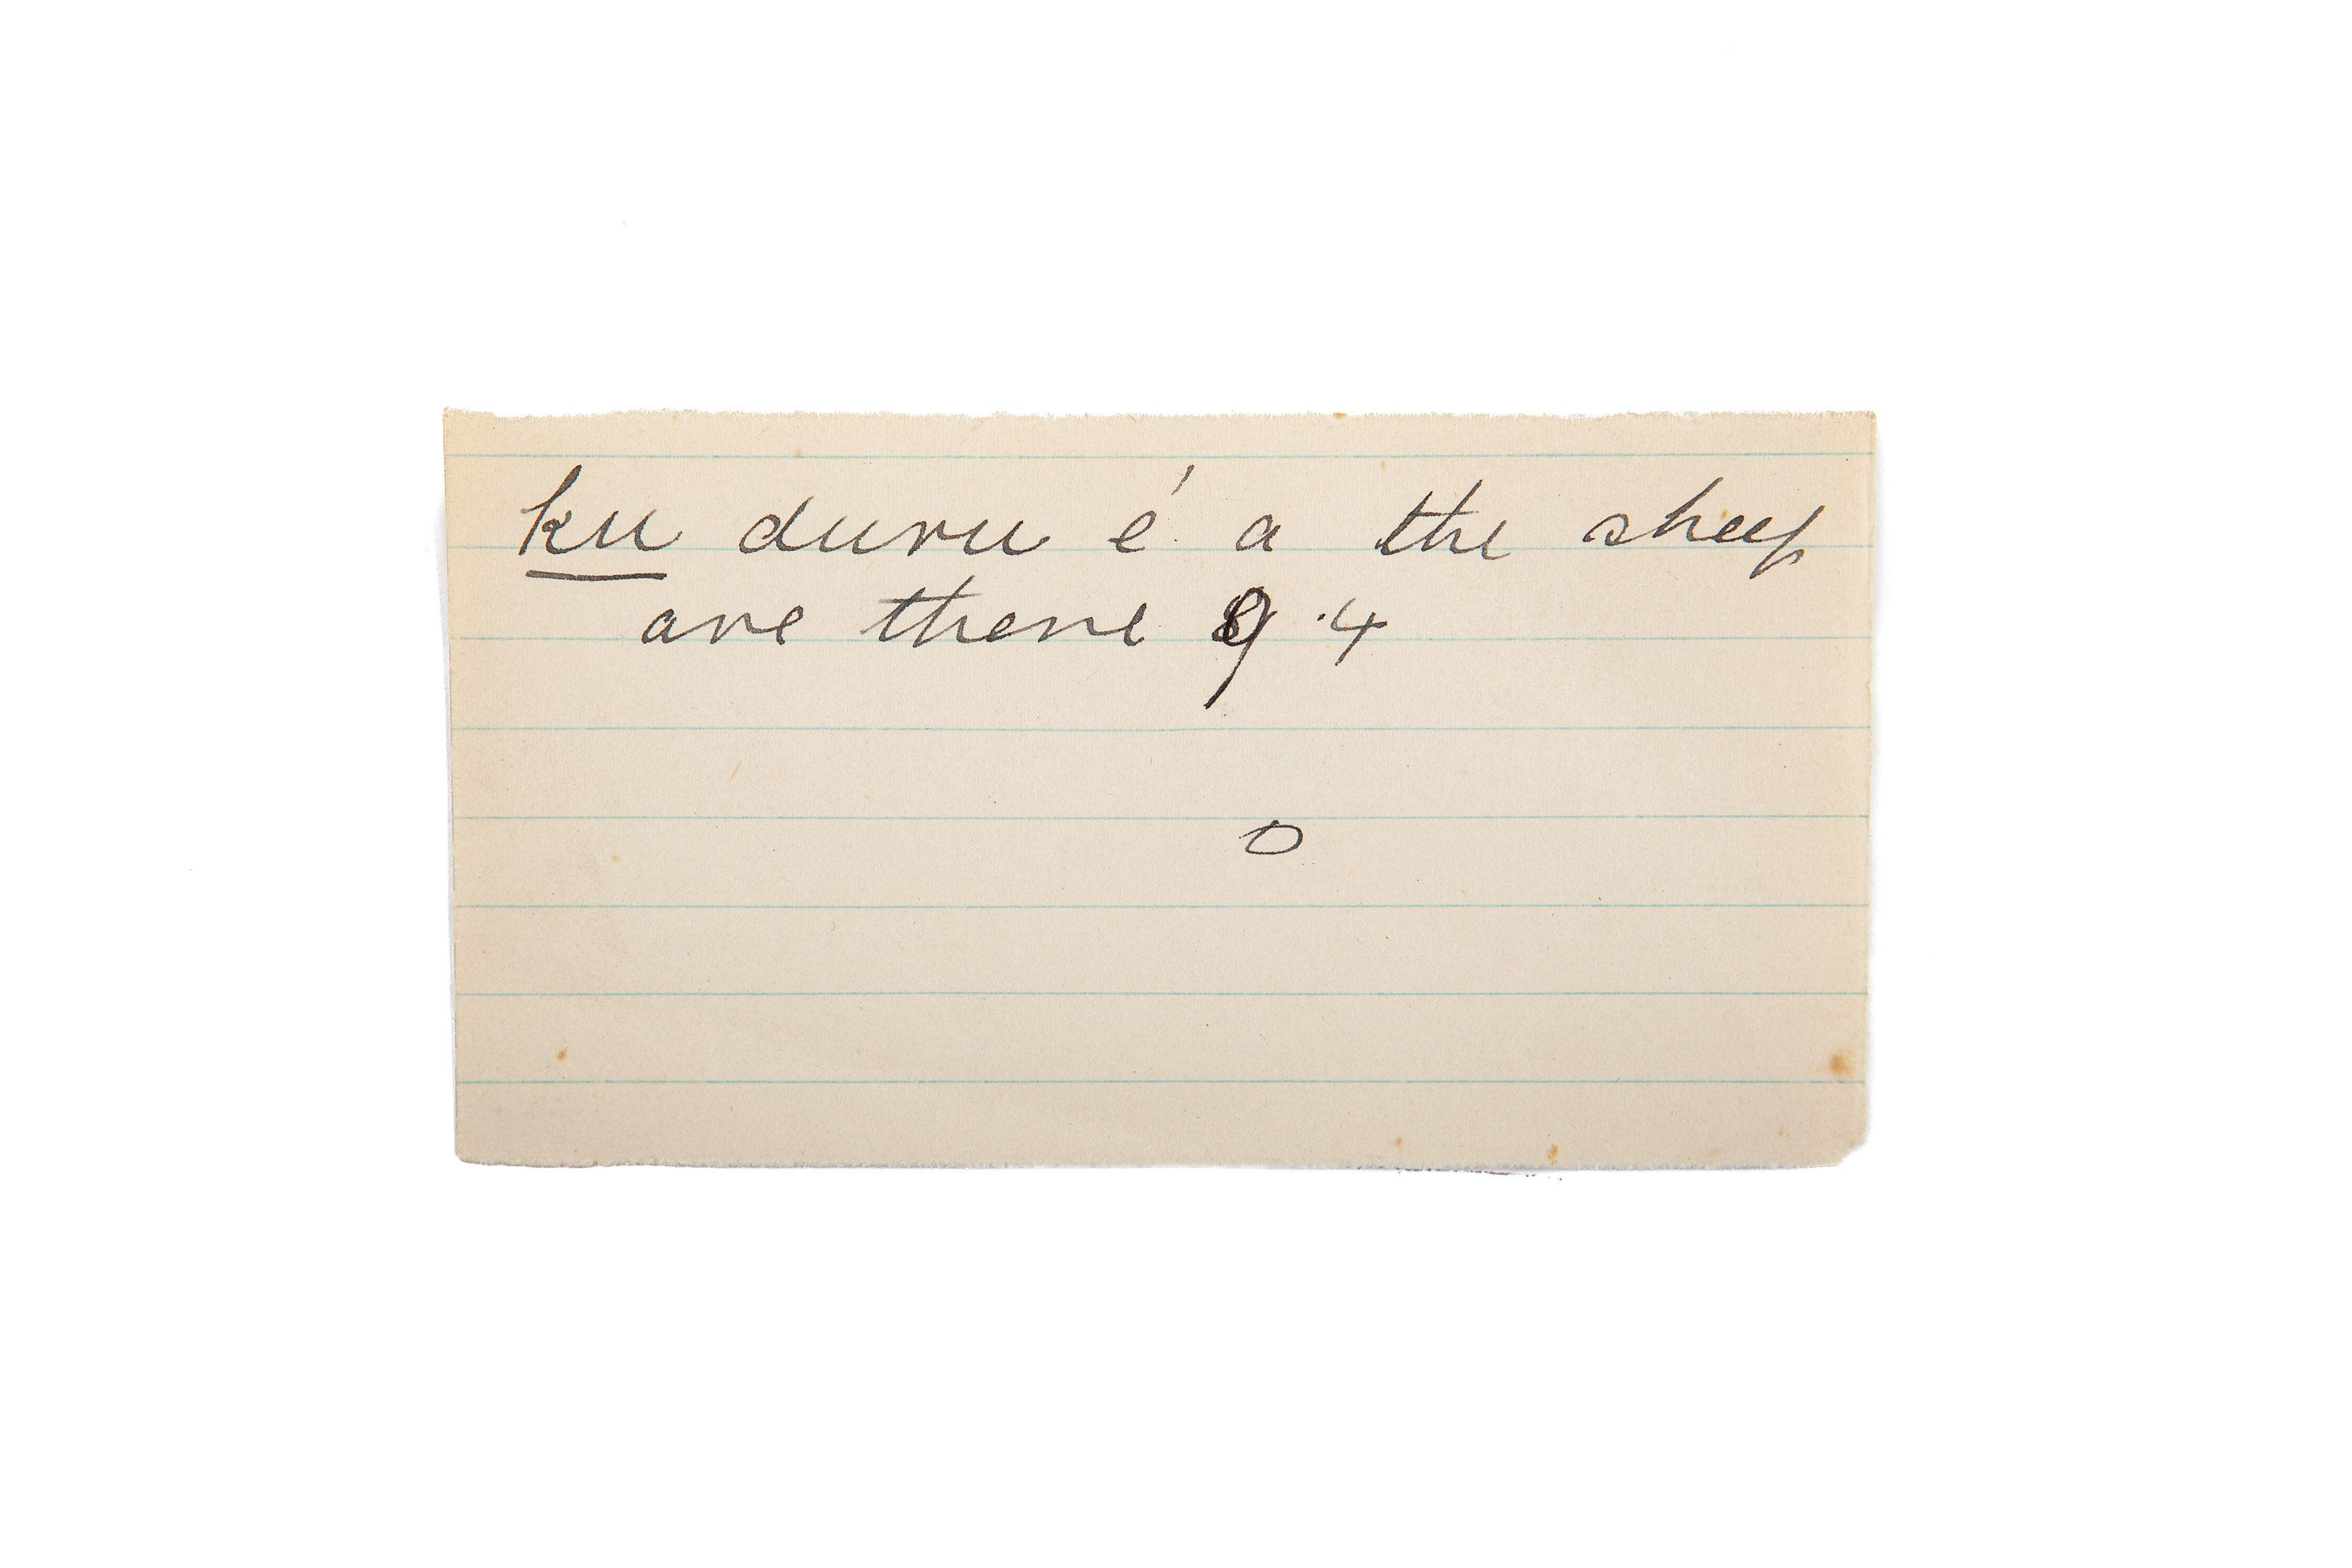 ku duru é a the sheep
are there 9.4
o